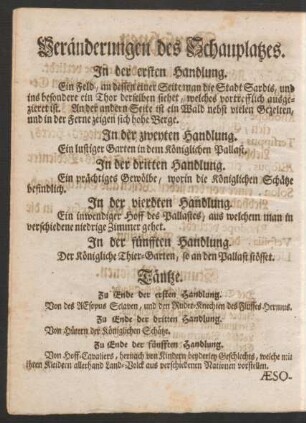 Veränderungen des Schauplatzes.
In der ersten Handlung.
Ein Feld, an dessen einer Seite man die Stadt Sardis, und
ins besondere ein Thor derselben siehet, welches vortrefflich ausge-
zieret ist. An der andern Seite ist ein Wald nebst vielen Gezelten,
und in der Ferne zeigen sich hohe Berge.
In der zweyten Handlung.
Ein lustiger Garten in dem Königlichen Pallast.
In der dritten Handlung.
Ein prächtiges Gewölbe, worin die Königlichen Schätze
befindlich.
In der vierdten Handlung.
Ein inwendiger Hoff des Pallastes, aus welchem man in
verschiedene niedrige Zimmer gehet.
In der fünfften Handlung.
Der Königliche Thier-Garten, so an den Pallast stösset.
Täntze.
Zu Ende der ersten Handlung.
Von des AEsopus Sclaven, und den Ruder-Knechten des Flusses Hermus.
Zu Ende der dritten Handlung.
Von Hütern der Königlichen Schätze.
Zu Ende der fünfften Handlung.
Von Hoff-Cavaliers, hernach von Kindern beyderley Geschlechts, welche mit
ihren Kleidern allerhand Land-Volck aus verschiedenen Nationen vorstellen.
ÆSO-